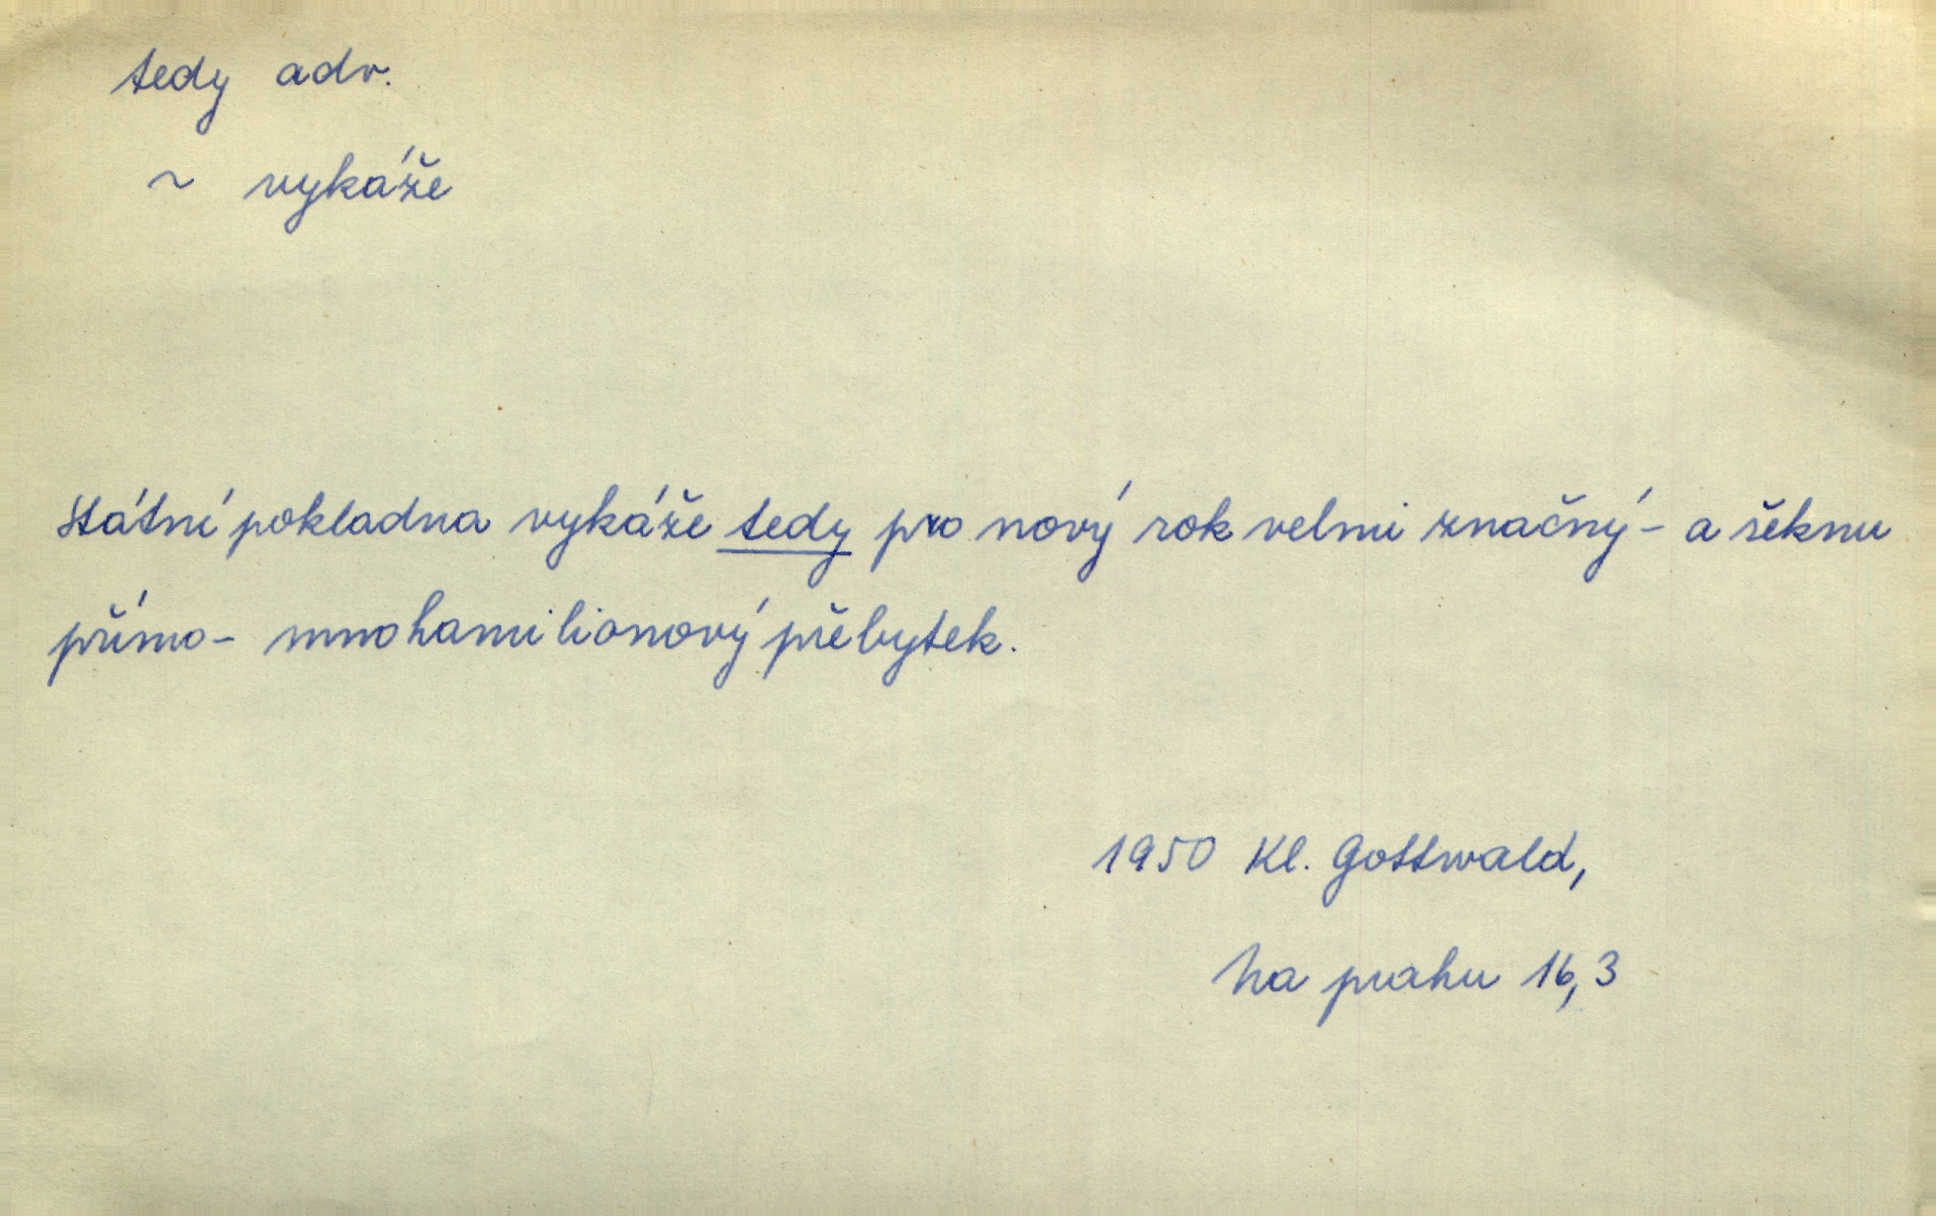 tedy adv.
~ vykáže
Státní pokladna vykáže tedy pro nový rok velmi značný - a řeknu
přímo - mnohamilionový přebytek.
1950 Kl. Gottwald,
Na prahu 16,3